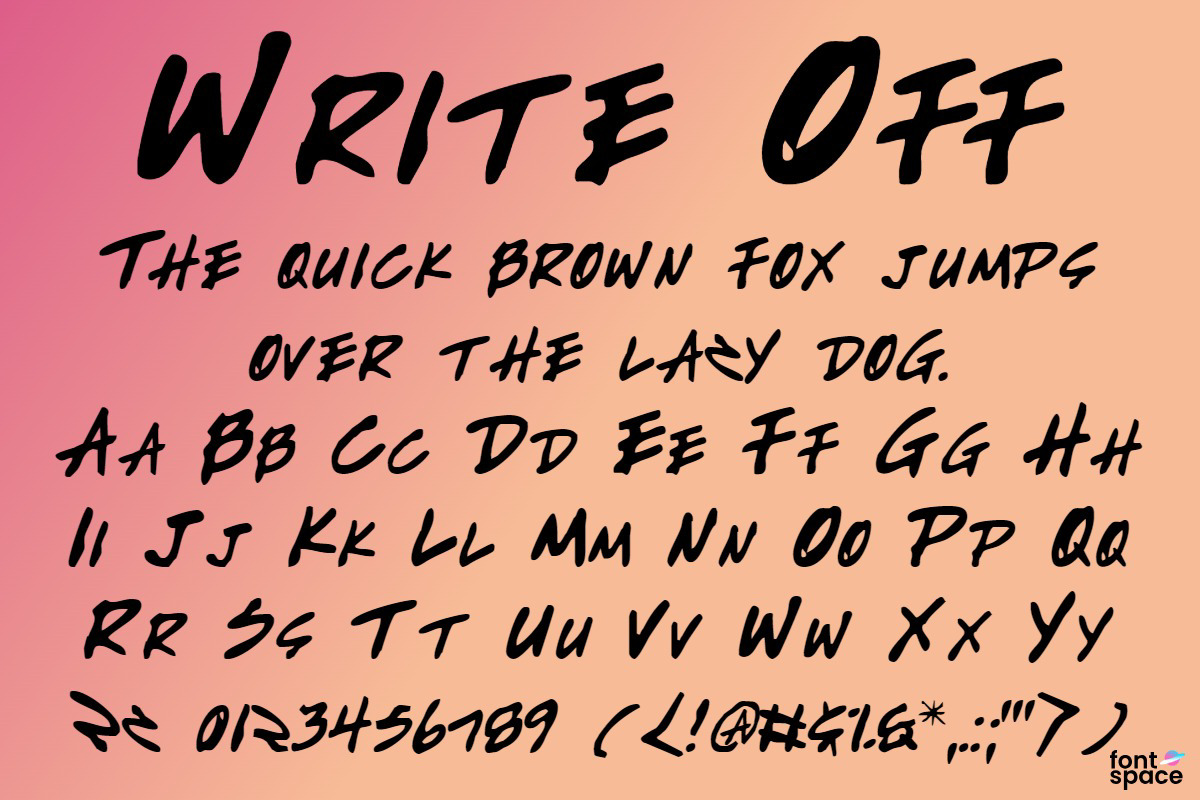 Write Off
The quick brown fox jumps
over the lazy dog.
Aa Bb Cc Dd Ee Ff Gg Hh
Ii Jj Kk Ll Mm Nn Oo Pp Qq
Rr Ss Tt Uu Vv Ww Xx Yy
Zz 0123456789 (<!@#$%&*,.:;"'>)
font
space